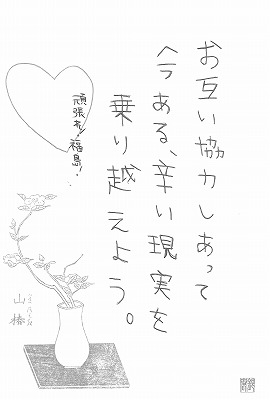 お互い協力しあって
今ある、辛い現実を
乗り越えよう。
頑張れ!福島!
山椿